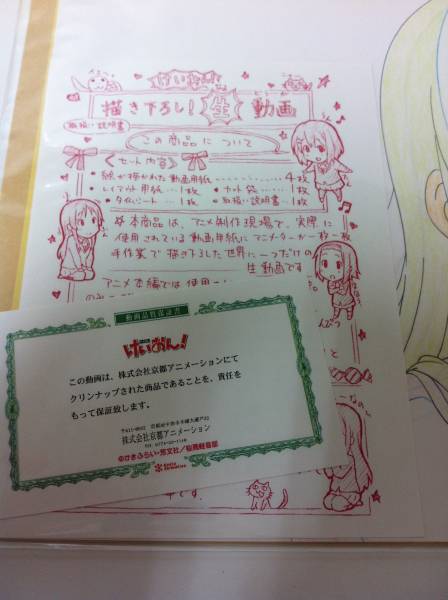 けいおん!
描き下ろし! 生 動画
取扱い説明書
この商品について
〈セット内容〉
・絵が描かれた動画用紙…………4枚
・レイアウト用紙…1枚 ・カット袋…1枚
・タイムシート…1枚 ・取扱い説明書…1枚
本商品は、アニメ制作現場で、実際に
使用されている動画用紙にアニメーターが一枚一枚
手作業で描き下ろした世界に一つだけの
生動画です
アニメ本編では使用…
動画品質保証書
けいおん!
この動画は、株式会社京都アニメーションにて
クリンナップされた商品であることを、責任を
もって保証致します。
株式会社京都アニメーション
©かきふらい・芳文社/桜高軽音部
です。